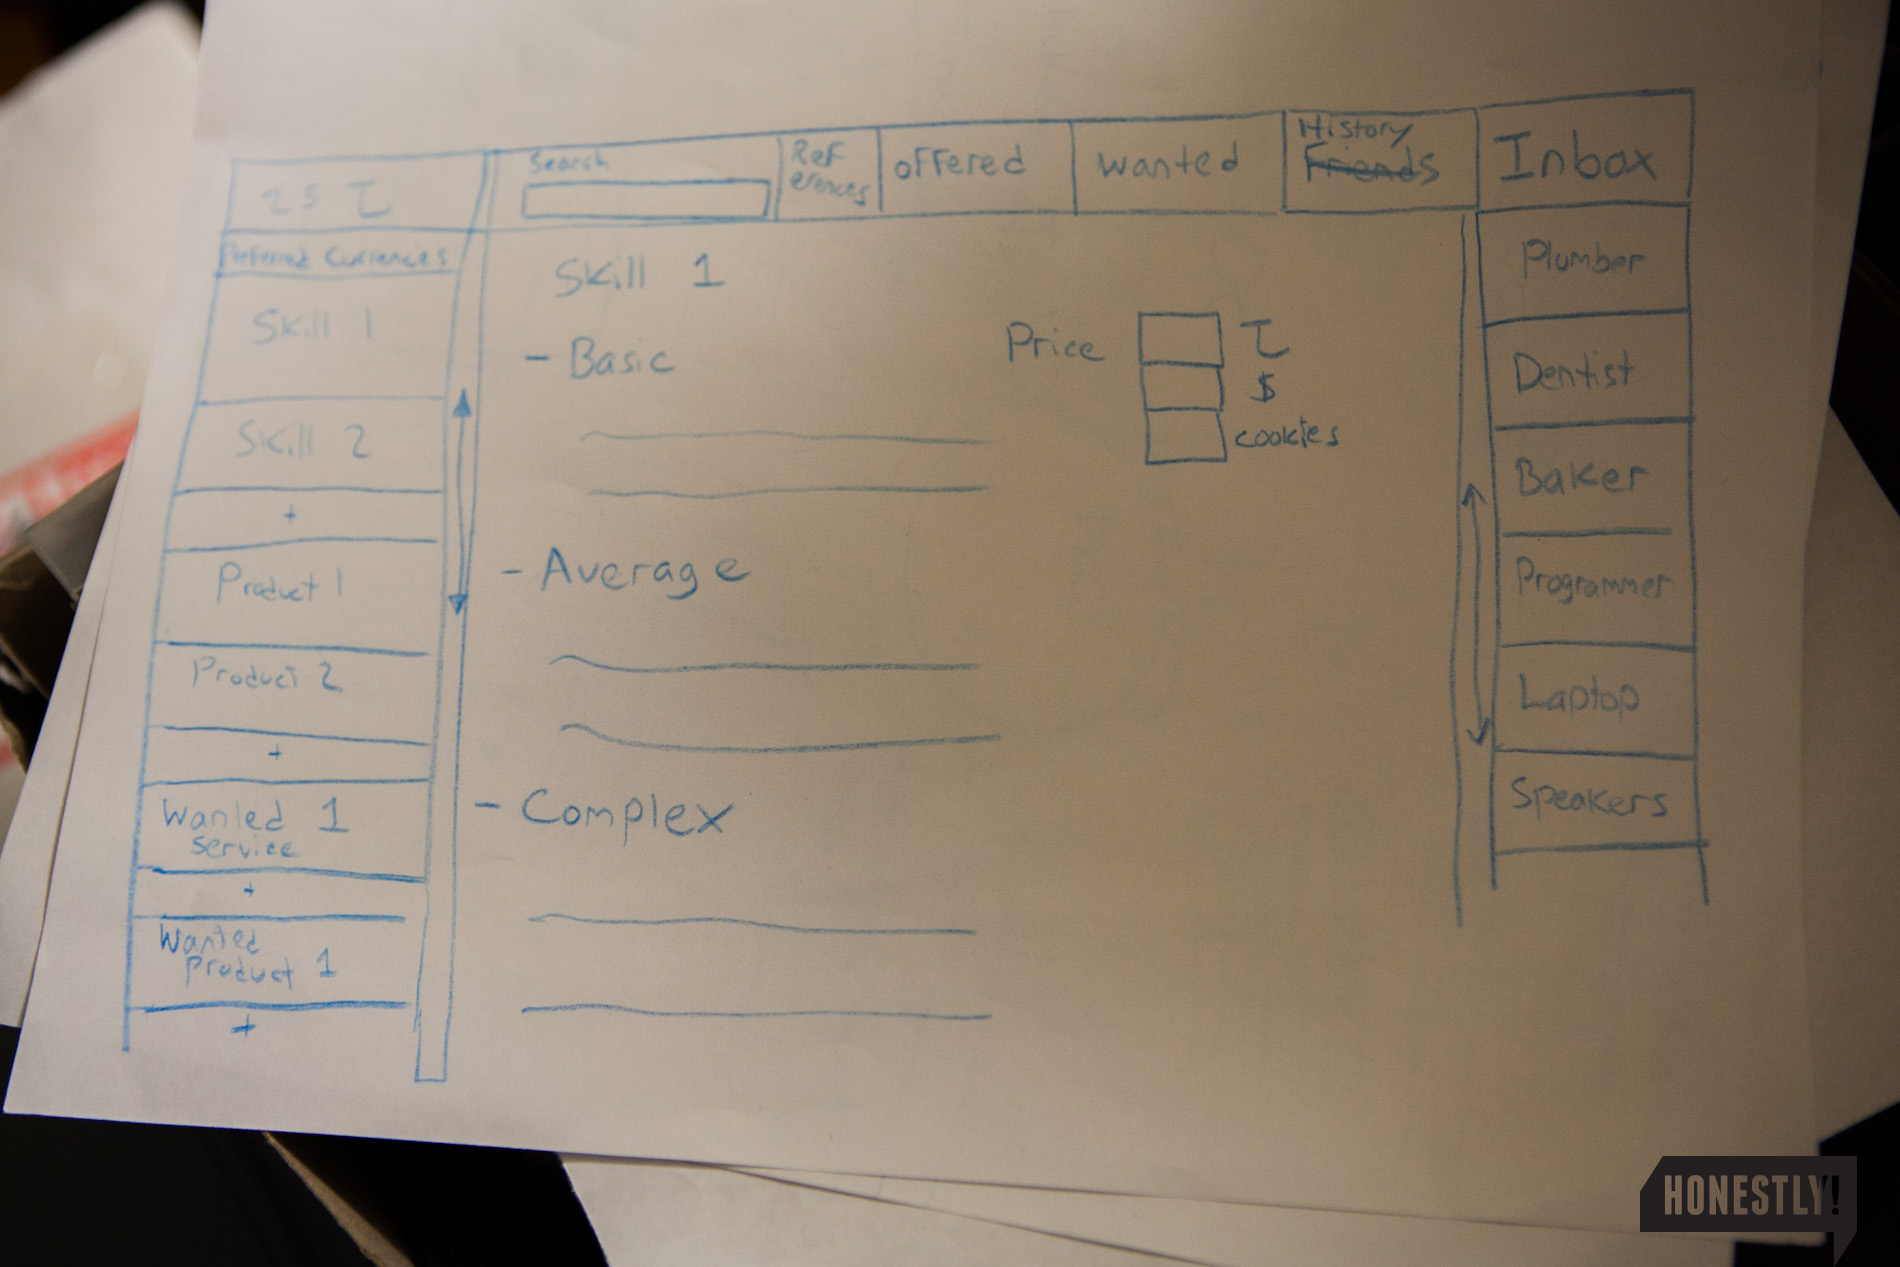 25 T
Search
Ref
erences
offered
wanted
History
Friends
Inbox
Preferred Currencies
Skill 1
Skill 2
+
Product 1
Product 2
+
Wanted 1
Service
+
Wanted
Product 1
+
Skill 1
- Basic
Price
T
$
cookies
- Average
- Complex
Plumber
Dentist
Baker
Programmer
Laptop
Speakers
HONESTLY!